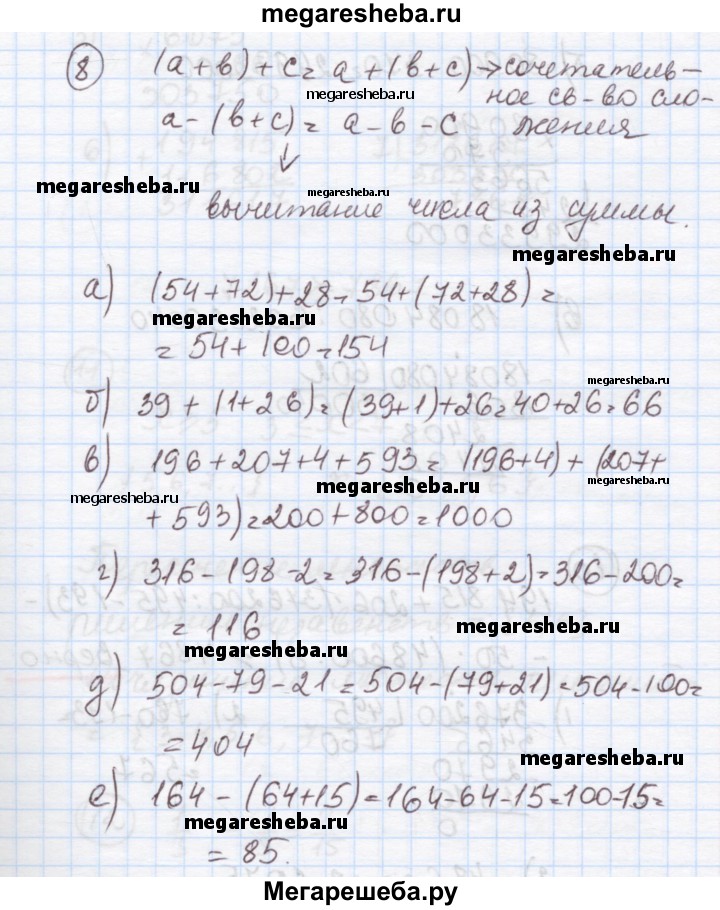 megaresheba.ru
8 (а+в)+с= а+(в+с)→сочетатель-
ное св-во сло-
megaresheba.ru
а-(в+с)= а-в-с жения
↓
megaresheba.ru
megaresheba.ru
вычитание числа из суммы.
megaresheba.ru
а) (54+72)+28= 54+(72+28)=
megaresheba.ru
= 54+100=154
megaresheba.ru
б) 39 + (1+26)=(39+1)+26=40+26=66
в) 196+207+4+593= (196+4)+(207+
megaresheba.ru
megaresheba.ru
megaresheba.ru
+593)=200+800=1000
г) 316-198-2= 316-(198+2)=316-200=
= 116
megaresheba.ru
д) 504-79-21=504-(79+21)=504-100=
=404
megaresheba.ru
е) 164-(64+15)=164-64-15=100-15=
megaresheba.ru
= 85.
Мегарешеба.ру